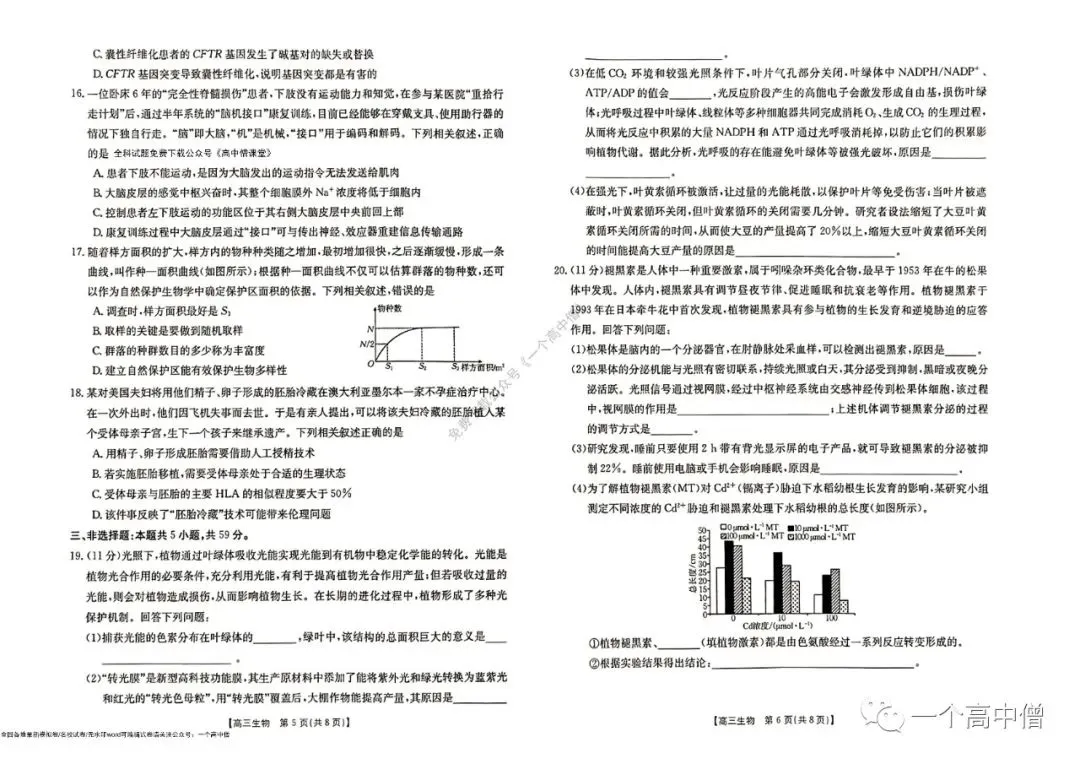 C. 囊性纤维化患者的 CFTR 基因发生了碱基对的缺失或替换
D. CFTR 基因突变导致囊性纤维化,说明基因突变都是有害的
16. 一位卧床 6 年的“完全性脊髓损伤”患者,下肢没有运动能力和知觉,在参与某医院“重拾行
走计划”后,通过半年系统的“脑机接口”康复训练,目前已经能够在穿戴支具、使用助行器的
情况下独自行走。“脑”即大脑,“机”是机械,“接口”用于编码和解码。下列相关叙述,正确
的是 全科试题免费下载公众号《高中僧课堂》
A. 患者下肢不能运动,是因为大脑发出的运动指令无法发送给肌肉
B. 大脑皮层的感觉中枢兴奋时,其整个细胞膜外 Na⁺ 浓度将低于细胞内
C. 控制患者左下肢运动的功能区位于其右侧大脑皮层中央前回上部
D. 康复训练过程中大脑皮层通过“接口”可与传出神经、效应器重建信息传输通路
17. 随着样方面积的扩大,样方内的物种种类随之增加,最初增加很快,之后逐渐缓慢,形成一条
曲线,叫作种—面积曲线(如图所示);根据种—面积曲线不仅可以估算群落的物种数,还可
以作为自然保护生物学中确定保护区面积的依据。下列相关叙述,错误的是
A. 调查时,样方面积最好是 S₃
B. 取样的关键是要做到随机取样
C. 群落的种群数目的多少称为丰富度
D. 建立自然保护区能有效保护生物多样性
物种数
N
N/2
O S₁ S₂ S₃ 样方面积/m²
18. 某对美国夫妇将用他们精子、卵子形成的胚胎冷藏在澳大利亚墨尔本一家不孕症治疗中心。
在一次外出时,他们因飞机失事而去世。于是有亲人提出,可以将该夫妇冷藏的胚胎植入某
个受体母亲子宫,生下一个孩子来继承遗产。下列相关叙述正确的是
A. 用精子、卵子形成胚胎需要借助人工授精技术
B. 若实施胚胎移植,需要受体母亲处于合适的生理状态
C. 受体母亲与胚胎的主要 HLA 的相似程度要大于 50%
D. 该件事反映了“胚胎冷藏”技术可能带来伦理问题
三、非选择题:本题共 5 小题,共 59 分。
19. (11 分)光照下,植物通过叶绿体吸收光能实现光能到有机物中稳定化学能的转化。光能是
植物光合作用的必要条件,充分利用光能,有利于提高植物光合作用产量;但若吸收过量的
光能,则会对植物造成损伤,从而影响植物生长。在长期的进化过程中,植物形成了多种光
保护机制。回答下列问题:
(1)捕获光能的色素分布在叶绿体的________,绿叶中,该结构的总面积巨大的意义是____
________________。
(2)“转光膜”是新型高科技功能膜,其生产原材料中添加了能将紫外光和绿光转换为蓝紫光
和红光的“转光色母粒”,用“转光膜”覆盖后,大棚作物能提高产量,其原因是________
【高三生物 第 5 页(共 8 页)】
________________。
(3)在低 CO₂ 环境和较强光照条件下,叶片气孔部分关闭,叶绿体中 NADPH/NADP⁺、
ATP/ADP 的值会________,光反应阶段产生的高能电子会激发形成自由基,损伤叶绿
体;光呼吸过程中叶绿体、线粒体等多种细胞器共同完成消耗 O₂、生成 CO₂ 的生理过程,
从而将光反应中积累的大量 NADPH 和 ATP 通过光呼吸消耗掉,以防止它们的积累影
响植物代谢。据此分析,光呼吸的存在能避免叶绿体等被强光破坏,原因是________
________________。
(4)在强光下,叶黄素循环被激活,让过量的光能耗散,以保护叶片等免受伤害;当叶片被遮
蔽时,叶黄素循环关闭,但叶黄素循环的关闭需要几分钟。研究者设法缩短了大豆叶黄
素循环关闭所需的时间,从而使大豆的产量提高了 20%以上,缩短大豆叶黄素循环关闭
的时间能提高大豆产量的原因是________________。
20. (11 分)褪黑素是人体中一种重要激素,属于吲哚杂环类化合物,最早于 1953 年在牛的松果
体中发现。人体内,褪黑素具有调节昼夜节律、促进睡眠和抗衰老等作用。植物褪黑素于
1993 年在日本牵牛花中首次发现,植物褪黑素具有参与植物的生长发育和逆境胁迫的应答
作用。回答下列问题:
(1)松果体是脑内的一个分泌器官,在肘静脉处采血样,可以检测出褪黑素,原因是____。
(2)松果体的分泌机能与光照有密切联系,持续光照或白天,其分泌受到抑制,黑暗或夜晚分
泌活跃。光照信号通过视网膜,经过中枢神经系统由交感神经传到松果体细胞,该过程
中,视网膜的作用是________________;上述机体调节褪黑素分泌的过程
的调节方式是______。
(3)研究发现,睡前只要使用 2 h 带有背光显示屏的电子产品,就可导致褪黑素的分泌被抑
制 22%。睡前使用电脑或手机会影响睡眠,原因是________________。
(4)为了解植物褪黑素(MT)对 Cd²⁺(镉离子)胁迫下水稻幼根生长发育的影响,某研究小组
测定不同浓度的 Cd²⁺ 胁迫和褪黑素处理下水稻幼根的总长度(如图所示)。
0 μmol·L⁻¹ MT 10 μmol·L⁻¹ MT
100 μmol·L⁻¹ MT 1000 μmol·L⁻¹ MT
总长度/cm
50
45
40
35
30
25
20
15
10
5
0
0 10 100
Cd浓度/(μmol·L⁻¹)
①植物褪黑素、______(填植物激素)都是由色氨酸经过一系列反应转变形成的。
②根据实验结果得出结论:________________。
【高三生物 第 6 页(共 8 页)】
一个高中僧